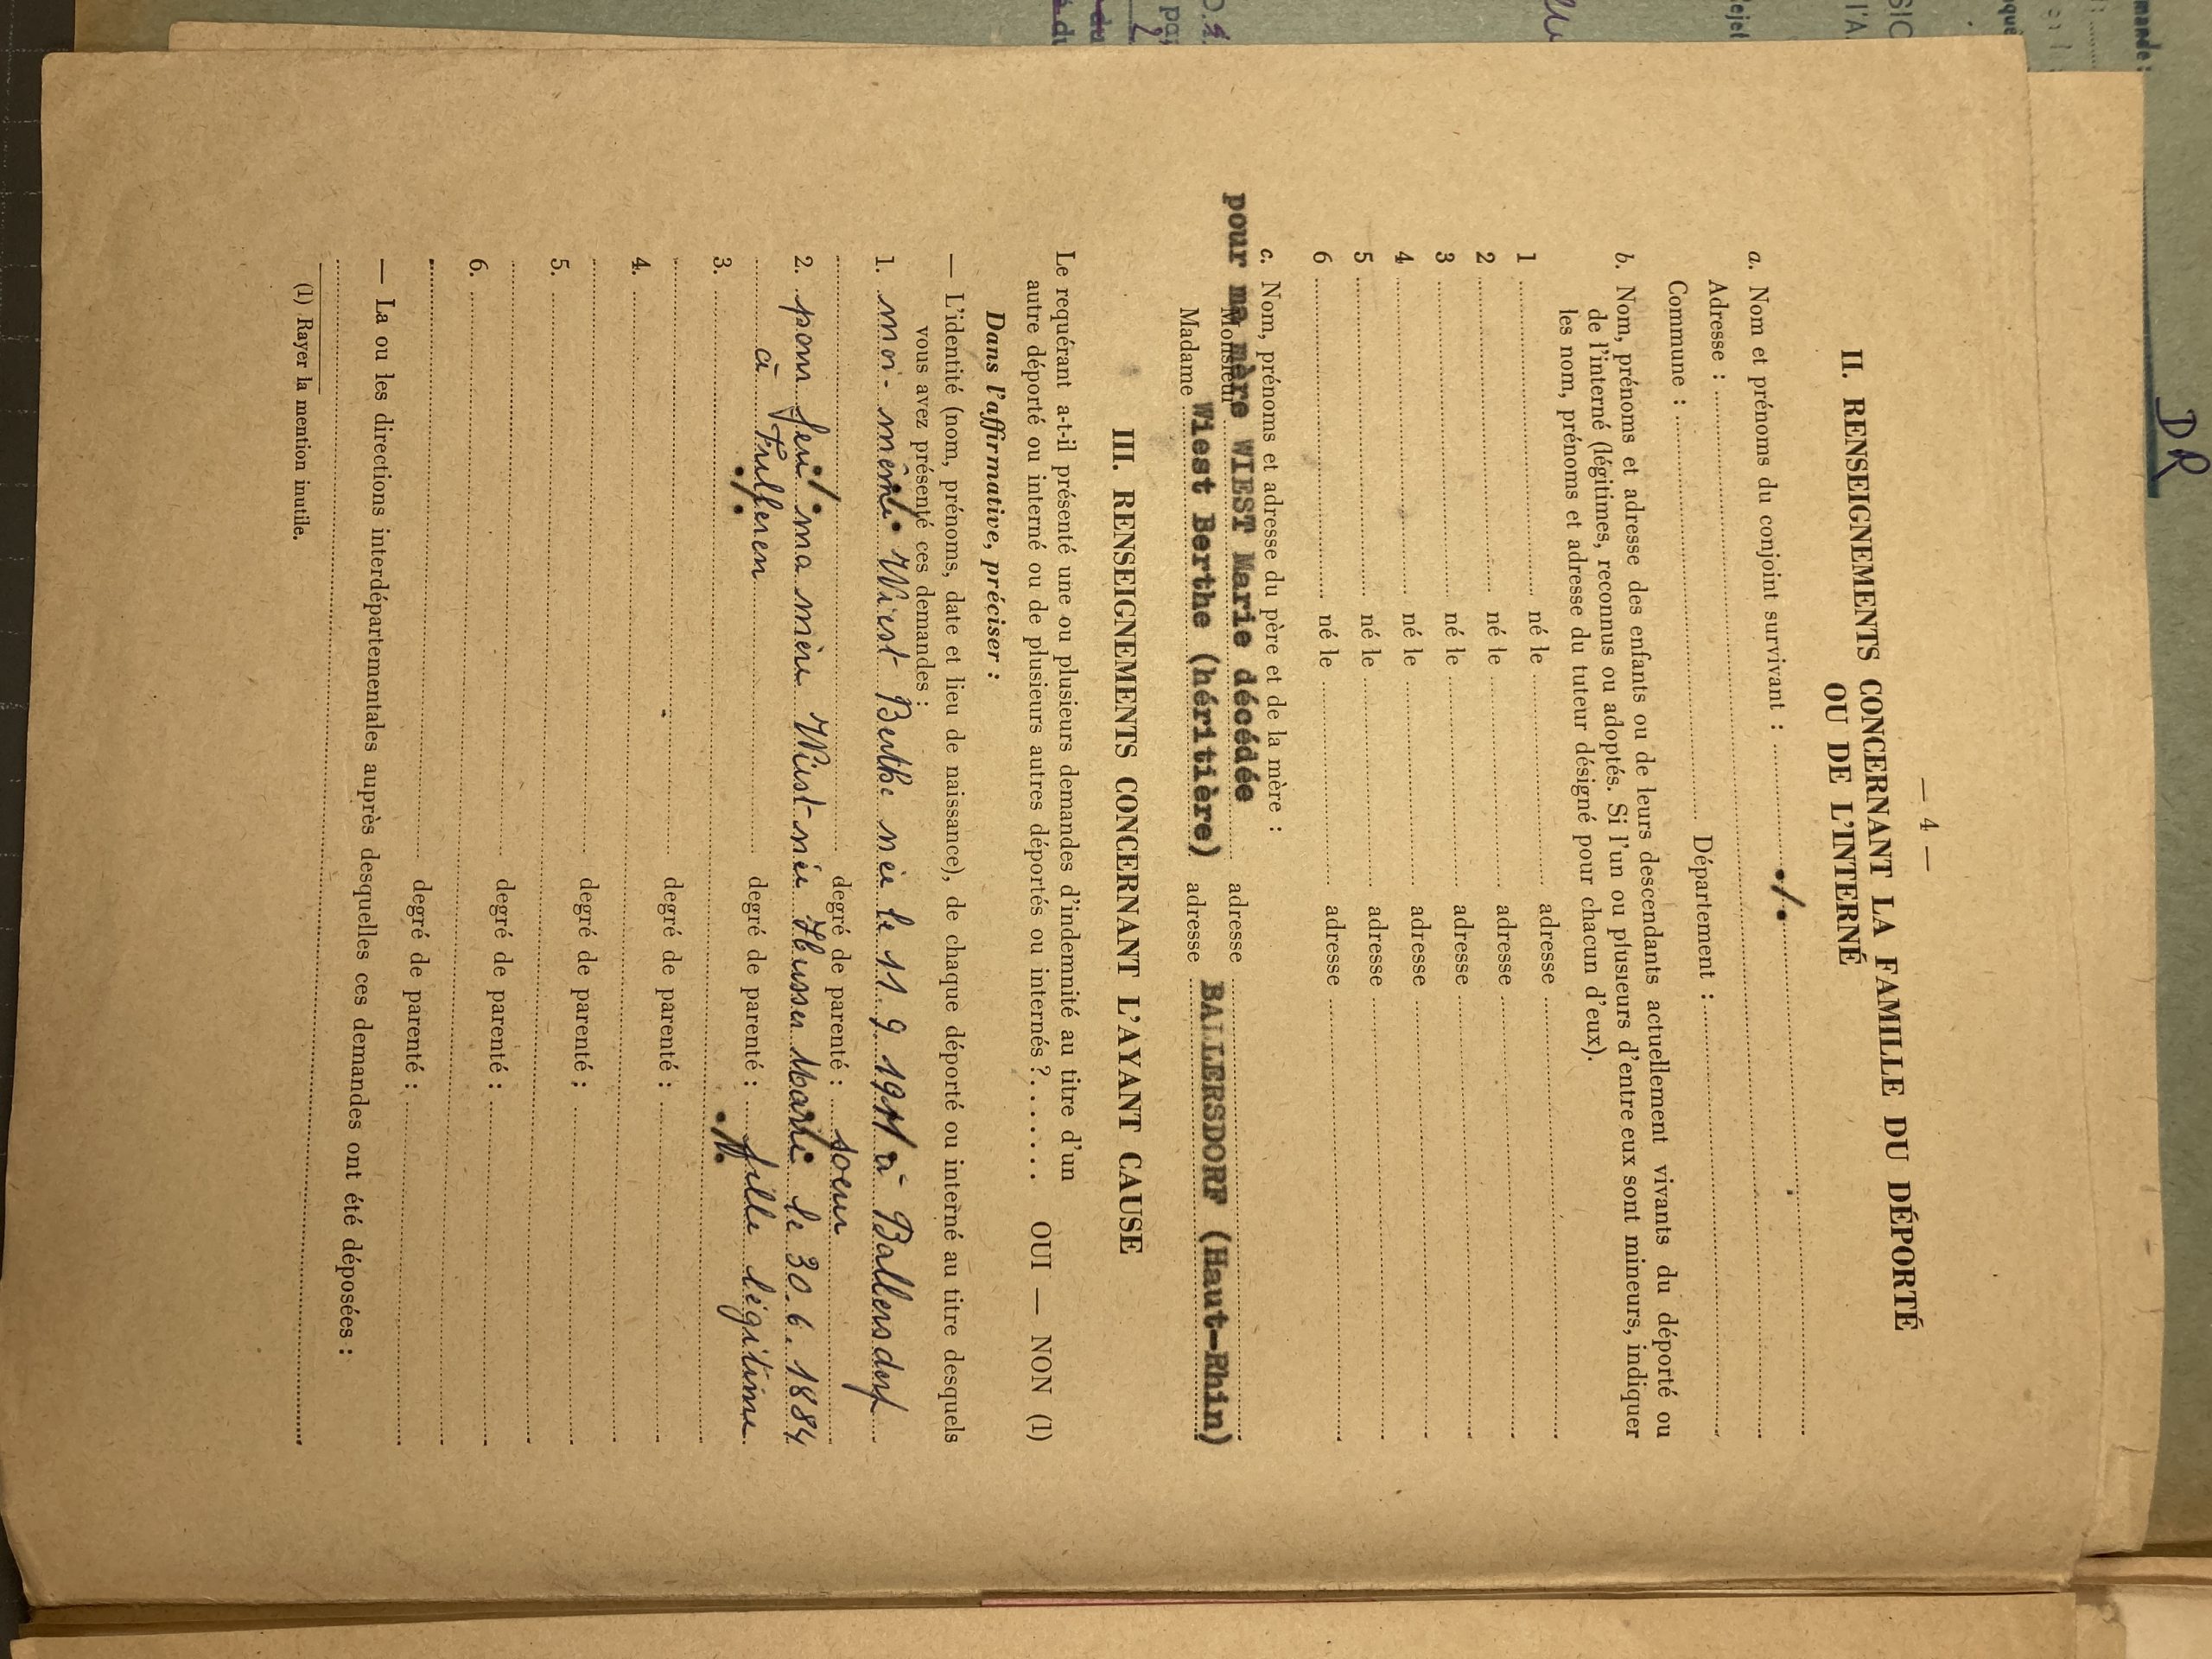 DR
— 4 —
II. RENSEIGNEMENTS CONCERNANT LA FAMILLE DU DÉPORTÉ
OU DE L'INTERNÉ
a. Nom et prénoms du conjoint survivant : ./.
Adresse :
Commune : Département :
b. Nom, prénoms et adresse des enfants ou de leurs descendants actuellement vivants du déporté ou
de l'interné (légitimes, reconnus ou adoptés. Si l'un ou plusieurs d'entre eux sont mineurs, indiquer
les nom, prénoms et adresse du tuteur désigné pour chacun d'eux).
1 né le adresse
2 né le adresse
3 né le adresse
4 né le adresse
5 né le adresse
6 né le adresse
c. Nom, prénoms et adresse du père et de la mère :
pour ma mère WIEST Marie décédée
Monsieur adresse
Madame Wiest Berthe (héritière) adresse BALLERSDORF (Haut-Rhin)
III. RENSEIGNEMENTS CONCERNANT L'AYANT CAUSE
Le requérant a-t-il présenté une ou plusieurs demandes d'indemnité au titre d'un
autre déporté ou interné ou de plusieurs autres déportés ou internés ?....... OUI — NON (1)
Dans l'affirmative, préciser :
— L'identité (nom, prénoms, date et lieu de naissance), de chaque déporté ou interné au titre desquels
vous avez présenté ces demandes :
1. moi-même Wiest Berthe née le 11.9.1911 à Ballersdorf
./. degré de parenté : soeur
2. pour feu ma mère Wiest née Marie le 30.6.1884
à Fulleren degré de parenté : fille légitime
3. ./. ./.
degré de parenté :
4.
degré de parenté :
5.
degré de parenté :
6.
degré de parenté :
— La ou les directions interdépartementales auprès desquelles ces demandes ont été déposées :
(1) Rayer la mention inutile.